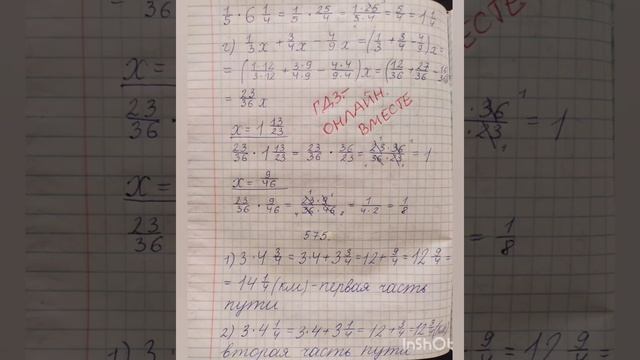 1/5 · 6 1/4 = 1/5 · 25/4 = 1·25/5·4 = 5/4 = 1 1/4
г) 1/3 x + 3/4 x - 4/9 x = (1/3 + 3/4 - 4/9) x =
= (1·12/3·12 + 3·9/4·9 - 4·4/9·4) x = (12/36 + 27/36 - 16/36
= 23/36 x
ГДЗ-
ОНЛАЙН.
ВМЕСТЕ
x = 1 13/23
23/36 · 1 13/23 = 23/36 · 36/23 = 23·36/36·23 = 1
x = 9/46
23/36 · 9/46 = 23·9/36·46 = 1/4·2 = 1/8
575.
1) 3·4 3/4 = 3·4 + 3 3/4 = 12 + 9/4 = 12 9/4 =
= 14 1/4 (км) - первая часть
пути
2) 3·4 1/4 = 3·4 + 3 1/4 = 12 + 3/4 = 12 3/4 (км)
вторая часть пути
InShOt